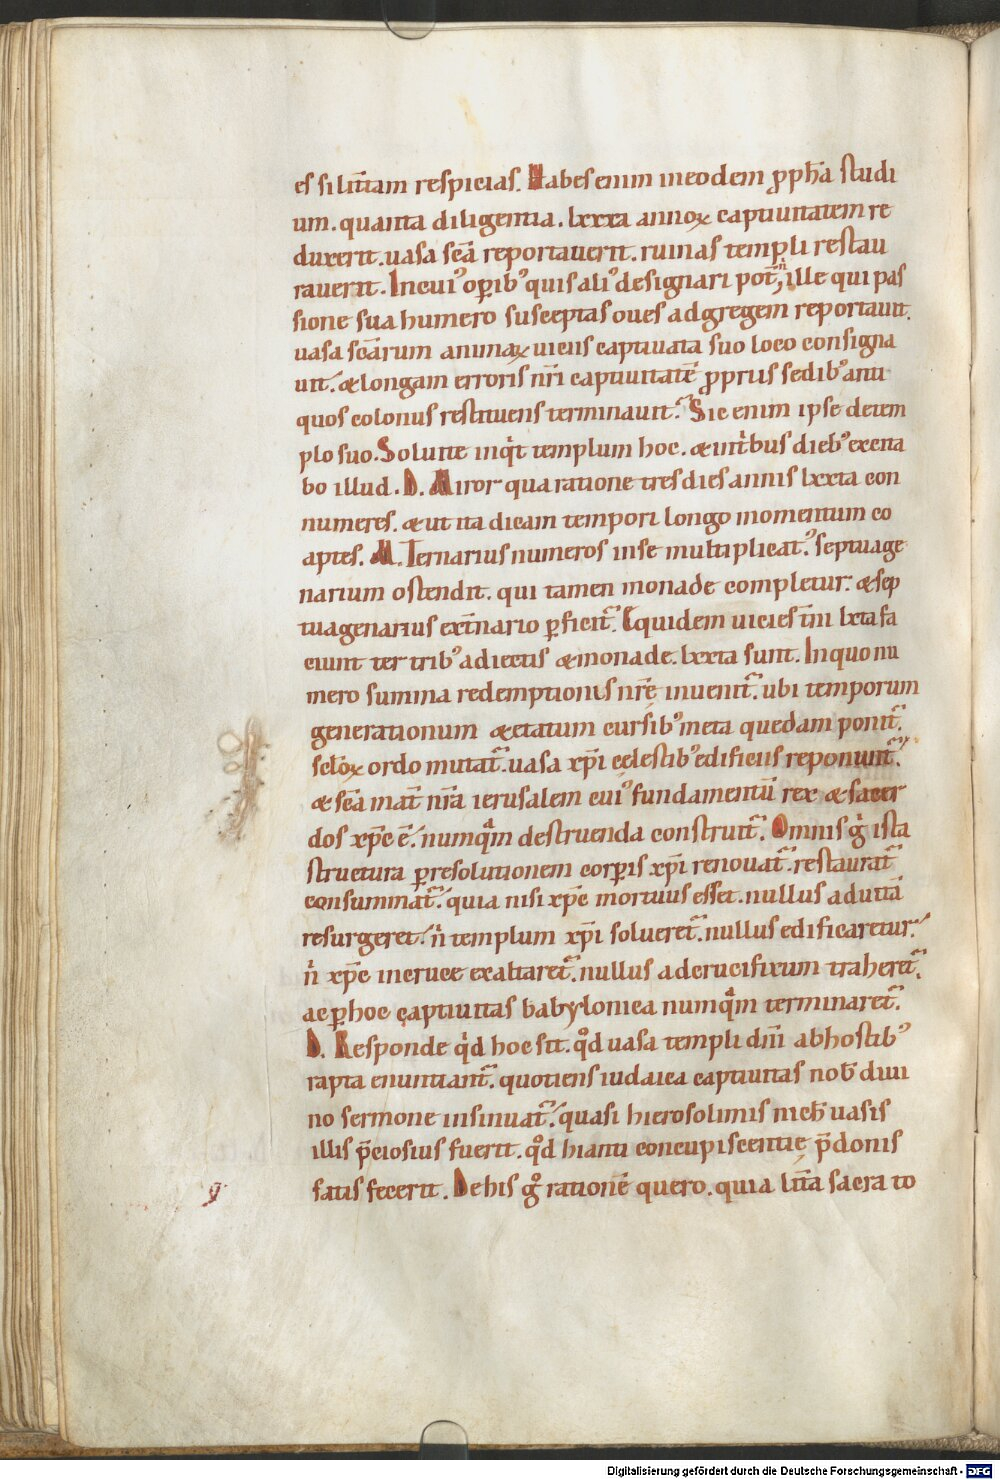 es si littam respicias. Habes enim in eodem ꝓph̄a studi
um. quanta diligentia. lxxxa annoꝝ captiuitatem re
duxerit. uasa sc̄a reportauerit. ruinas templi restau
rauerit. In cui᾽ oꝑib᾽ quis ali᾽ designari pot̄, n̄ ille qui pas
sione sua humero susceptas oues ad gregem reportauit.
uasa sc̄arum animaꝝ uiciis captiuata suo loco consigna
uit. & longam erroris nr̄i captiuitatē ꝓpriis sedib᾽ anti
quos colonus restituens terminauit. Sic enim ipse de tem
plo suo. Soluite inqͥt templum hoc. & in tribus dieb᾽ excita
bo illud. D. Miror qua ratione tres dies annis lxxta con
numeres. & ut ita dicam tempori longo momentum co
aptes. M. Ternarius numeros in se multiplicat᾽. septuage
narium ostendit. qui tamen monade completur. & sep
tuagenarius ex t̄nario ꝑficit᾽. Equidem uicies t̄ni lxta fa
ciunt ter trib᾽ adiectis & monade. lxxta sunt. In quo nu
mero summa redemptionis nr̄ę inuenit᾽. ubi temporum
generationum & etatum cursib᾽ meta quedam ponit᾽.
sc̄loꝝ ordo mutat᾽. uasa xp̄i cęlestib᾽ edificiis reponunt᾽.
& sc̄a mat̄ nr̄a ierusalem cui᾽ fundamentū rex & sacer
dos xp̄c ē. numqͣm destruenda construit᾽. Omnis gͥ ista
structura ꝑ resolutionem corꝑis xp̄i renouat᾽. restaurat᾽
consummat᾽. quia nisi xp̄c mortuus esset. nullus ad uitā
resurgeret. n̄ templum xp̄i solueret᾽. nullus edificaretur.
n̄ xp̄c in cruce exaltaret᾽. nullus ad crucifixum traheret᾽.
ac ꝑ hoc captiuitas babylonica numqͣm terminaret᾽.
D. Responde qͥd hoc sit. qͦd uasa templi dn̄i ab hostib᾽
rapta enuntiant᾽. quotiens iudaica captiuitas nob̄ diui
no sermone insinuat᾽. quasi hierosolimis nich̄ uasis
illis p̄ciosius fuerit. qͦd hianti concupiscentię p̄donis
satis fecerit. De his gͦ rationē quero. quia litt̄a sacra to